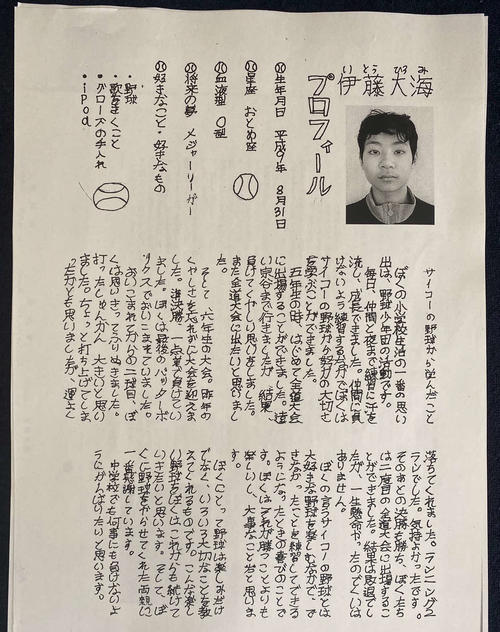 い とう ひろ み
伊藤大海
プロフィール
生年月日 平成9年 8月31日
星座 おとめ座
血液型 O型
将来の夢 メジャーリーガー
好きなこと・好きなもの
・野球
・歌をきくこと
・グローブの手入れ
・iPod
サイコーの野球から学んだこと
ぼくの小学校生活の一番の思い
出は、野球少年団の活動です。
毎日、仲間と夜まで練習に汗を
流し、成長できました。仲間に負
けないよう練習する心がでてぼくは
サイコーの野球から努力の大切さ
を学ぶことができました。
五年生の時、はじめて全道大会
に出場することができました。遠
い宗谷まで行きましたが、結果
負けてくやしい思いをしました。
また全道大会に出たいと思いまし
た。
そして、六年生の大会。昨年の
くやしさを忘れずに大会を迎えま
した。準決勝、一点差で負けてい
ました。ぼくは最後のバッターボ
ックスでおいこまれていました。
おいこまれてからの二球目、ぼ
くは思いきってふりぬきました。
打ったしゅんかん、大きいと思い
ました。ちょっと打ち上げてしま
ったかとも思いましたが、運よく
落ちてくれました。ランニング2
ランでした。気持よかったです。
そのあとの決勝も勝ち、ぼくたち
は二度目の全道大会に出場するこ
とができました。結果は敗退でし
たが、一生懸命やったのでくいは
ありません。
ぼくの言うサイコーの野球とは
大好きな野球を楽しむなかで、で
きなかったことを練習してできる
ようになったときの喜びのことで
す。ぼくはそれが勝つことよりも
楽しいし、大事なことだと思いま
す。
ぼくにとって野球は楽しみだけ
でなく、いろいろ大切なことを教
えてくれるものです。こんな楽し
い野球をぼくは、これからも続けて
いきたいと思います。そして、ぼ
くに野球をやらせてくれた両親に
一番感謝しています。
中学校でも何事にも負けないよ
うにがんばりたいと思います。